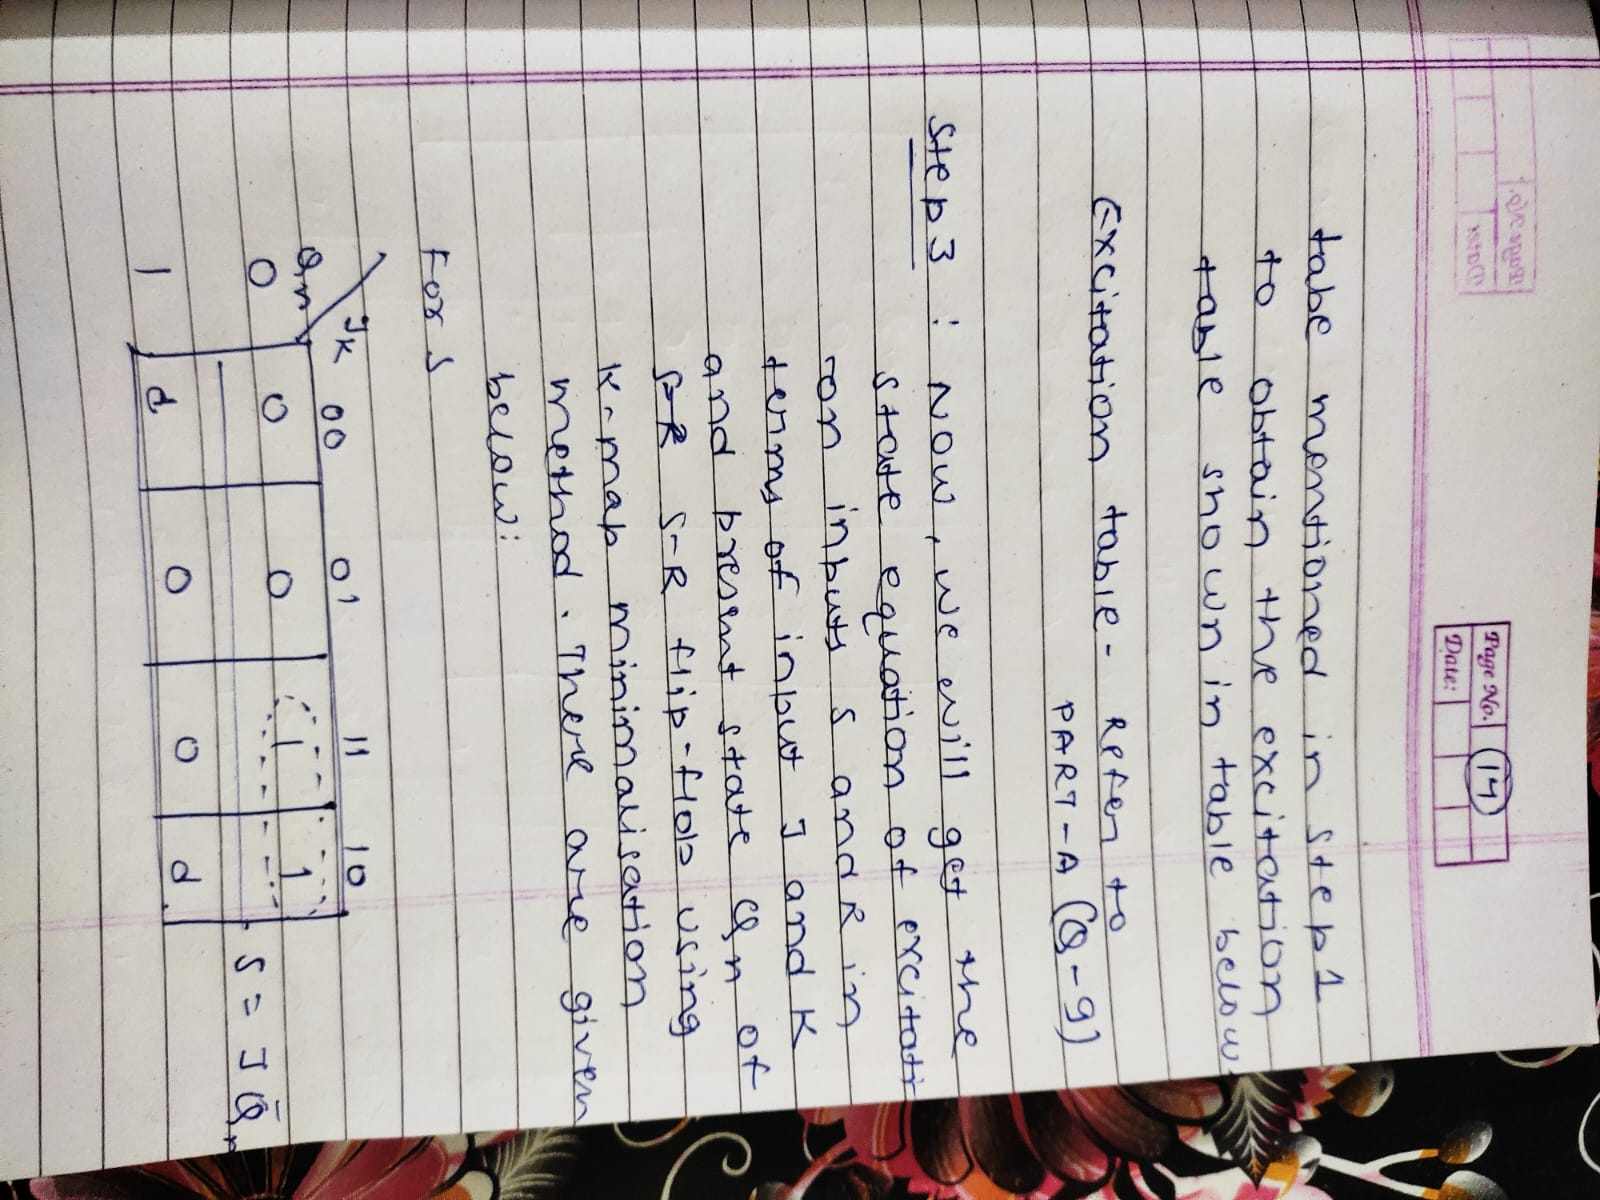 Page No. 14
Date:
tabe mentioned in step 1
to obtain the excitation
table shown in table below.
Excitation table - Refer to
PART-A (Q-9)
Step 3 : Now, we will get the
state equation of excitati
ion inputs S and R in
terms of input J and K
and present state Qn of
S-R S-R flip-flop using
K-map minimalisation
method. There are given
below:
For S
JK 00 01 11 10
Qn
0 0 0 1 1
1 d 0 0 d
S = J Q̄n